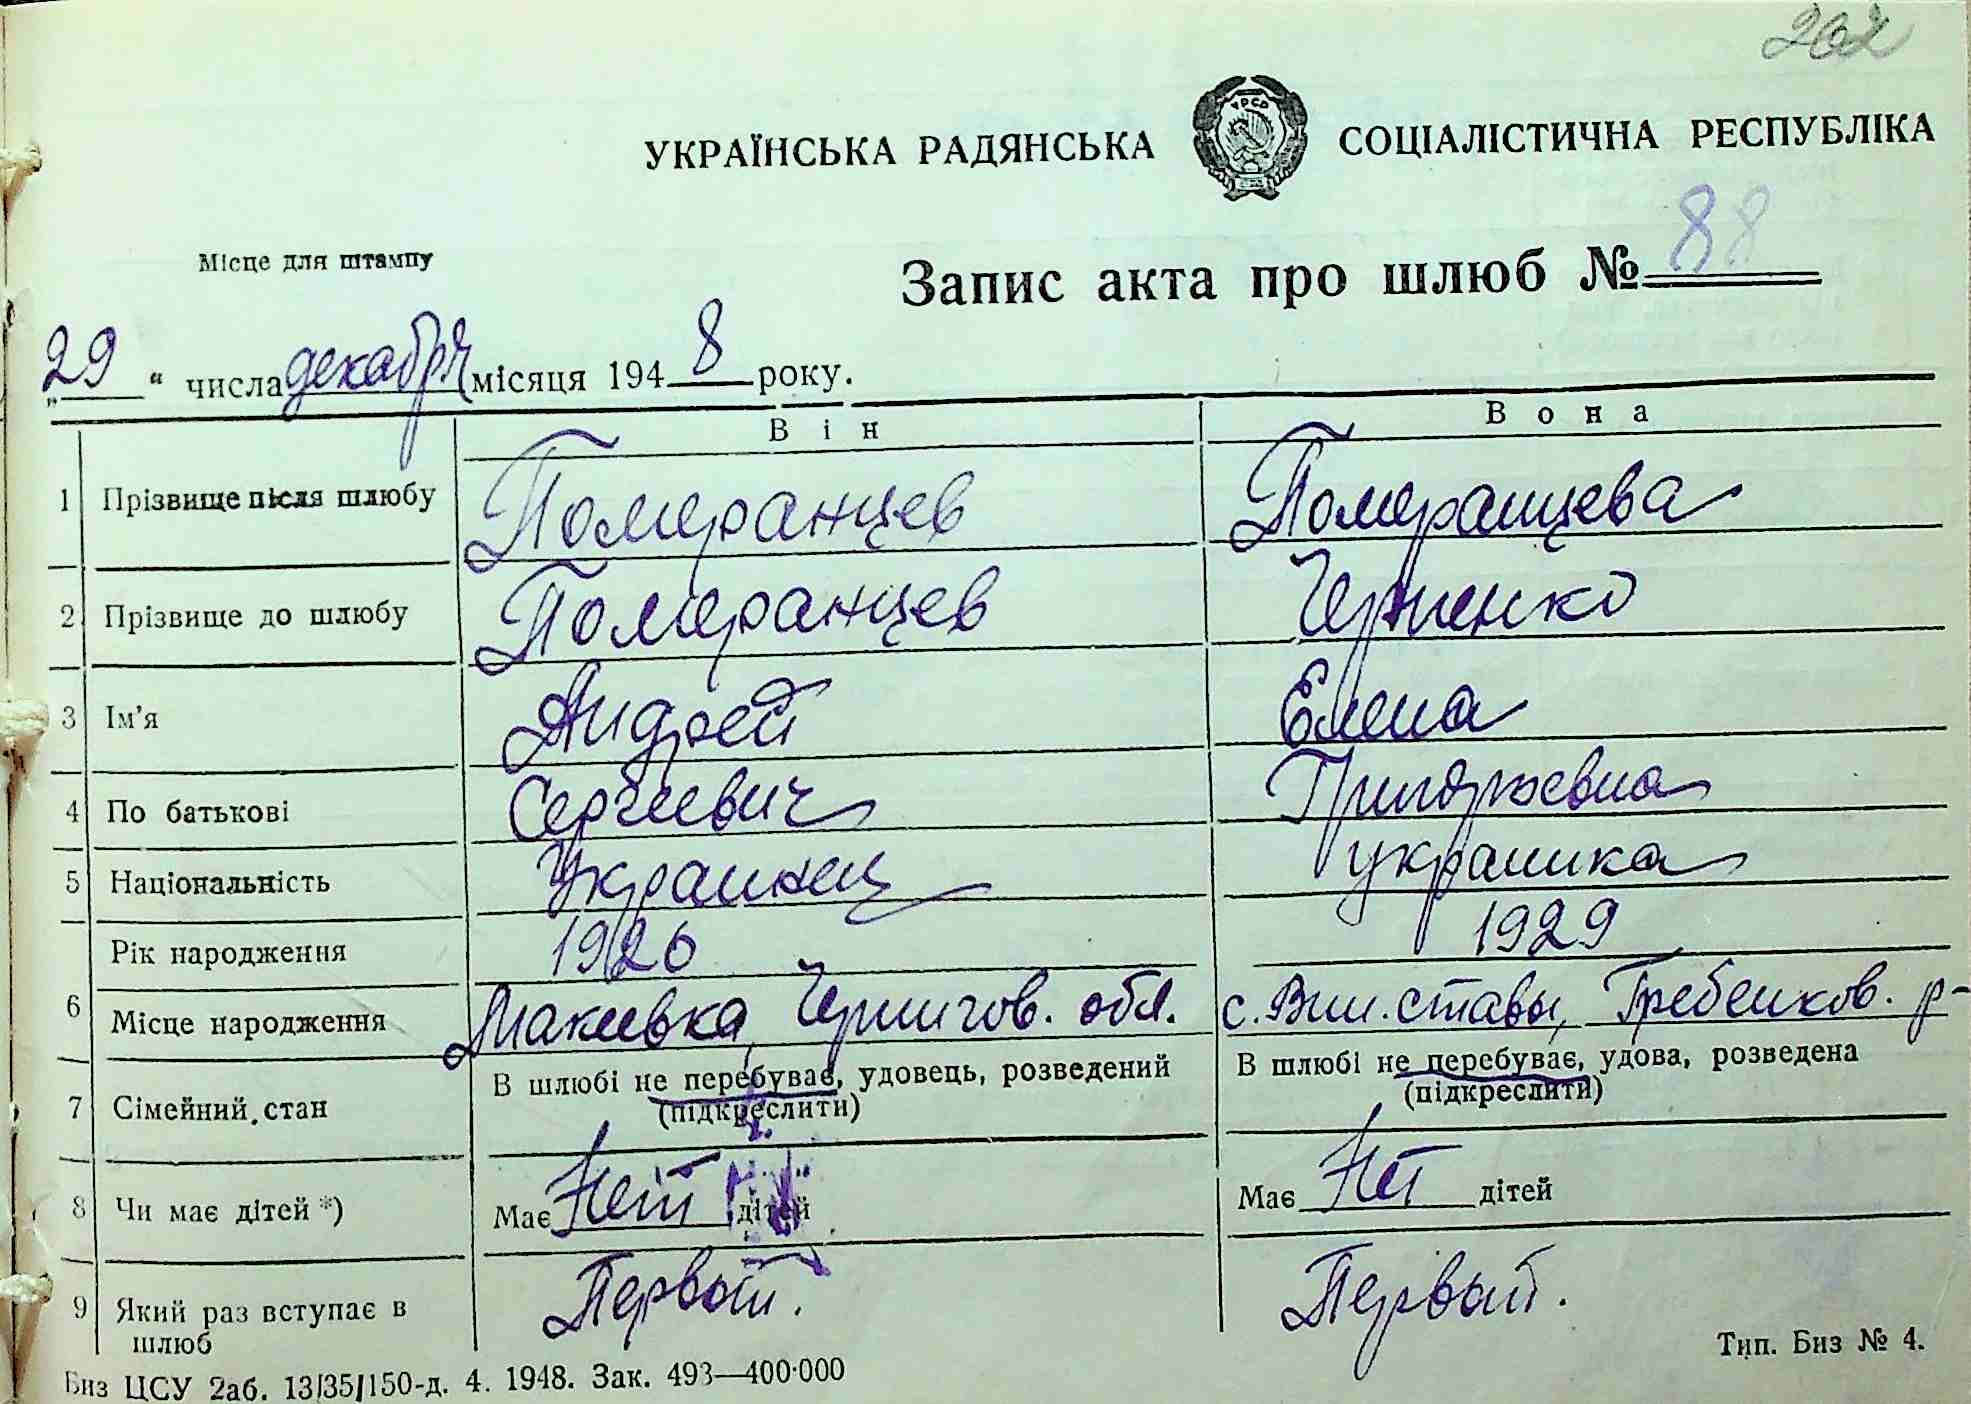 202
УКРАЇНСЬКА РАДЯНСЬКА СОЦІАЛІСТИЧНА РЕСПУБЛІКА
УРСР
Місце для штампу
Запис акта про шлюб № 88
„29“ числа декабря місяця 1948 року.
Він Вона
1 Прізвище після шлюбу Померанцев Померанцева
2 Прізвище до шлюбу Померанцев Черненко
3 Ім'я Андрей Елена
4 По батькові Сергеевич Григорьевна
5 Національність Украинец украинка
Рік народження 1926 1929
6 Місце народження Макиевка, Чернигов. обл. с. Вин. ставы, Гребенков. р-
7 Сімейний стан В шлюбі не перебуває, удовець, розведений В шлюбі не перебуває, удова, розведена
(підкреслити) (підкреслити)
8 Чи має дітей *) Має Нет дітей Має Нет дітей
9 Який раз вступає в Первый. Первый.
шлюб
Тип. Биз № 4.
Биз ЦСУ 2аб. 13/35/150-д. 4. 1948. Зак. 493—400·000